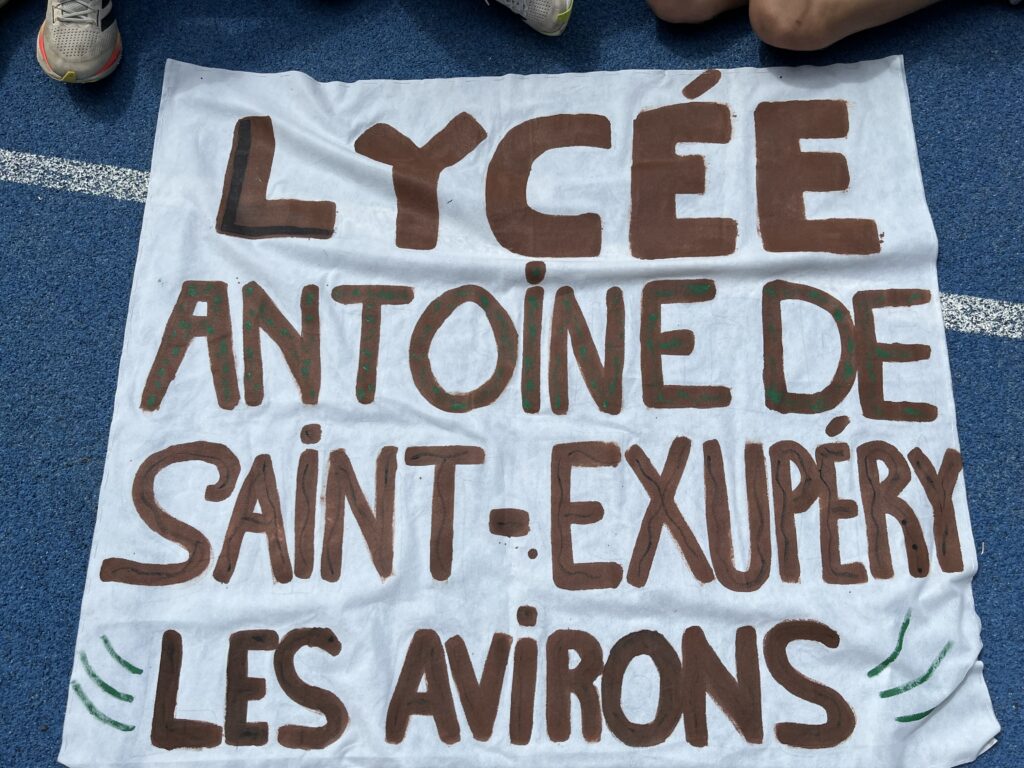 LYCÉE
ANTOINE DE
SAINT-EXUPÉRY
LES AVIRONS